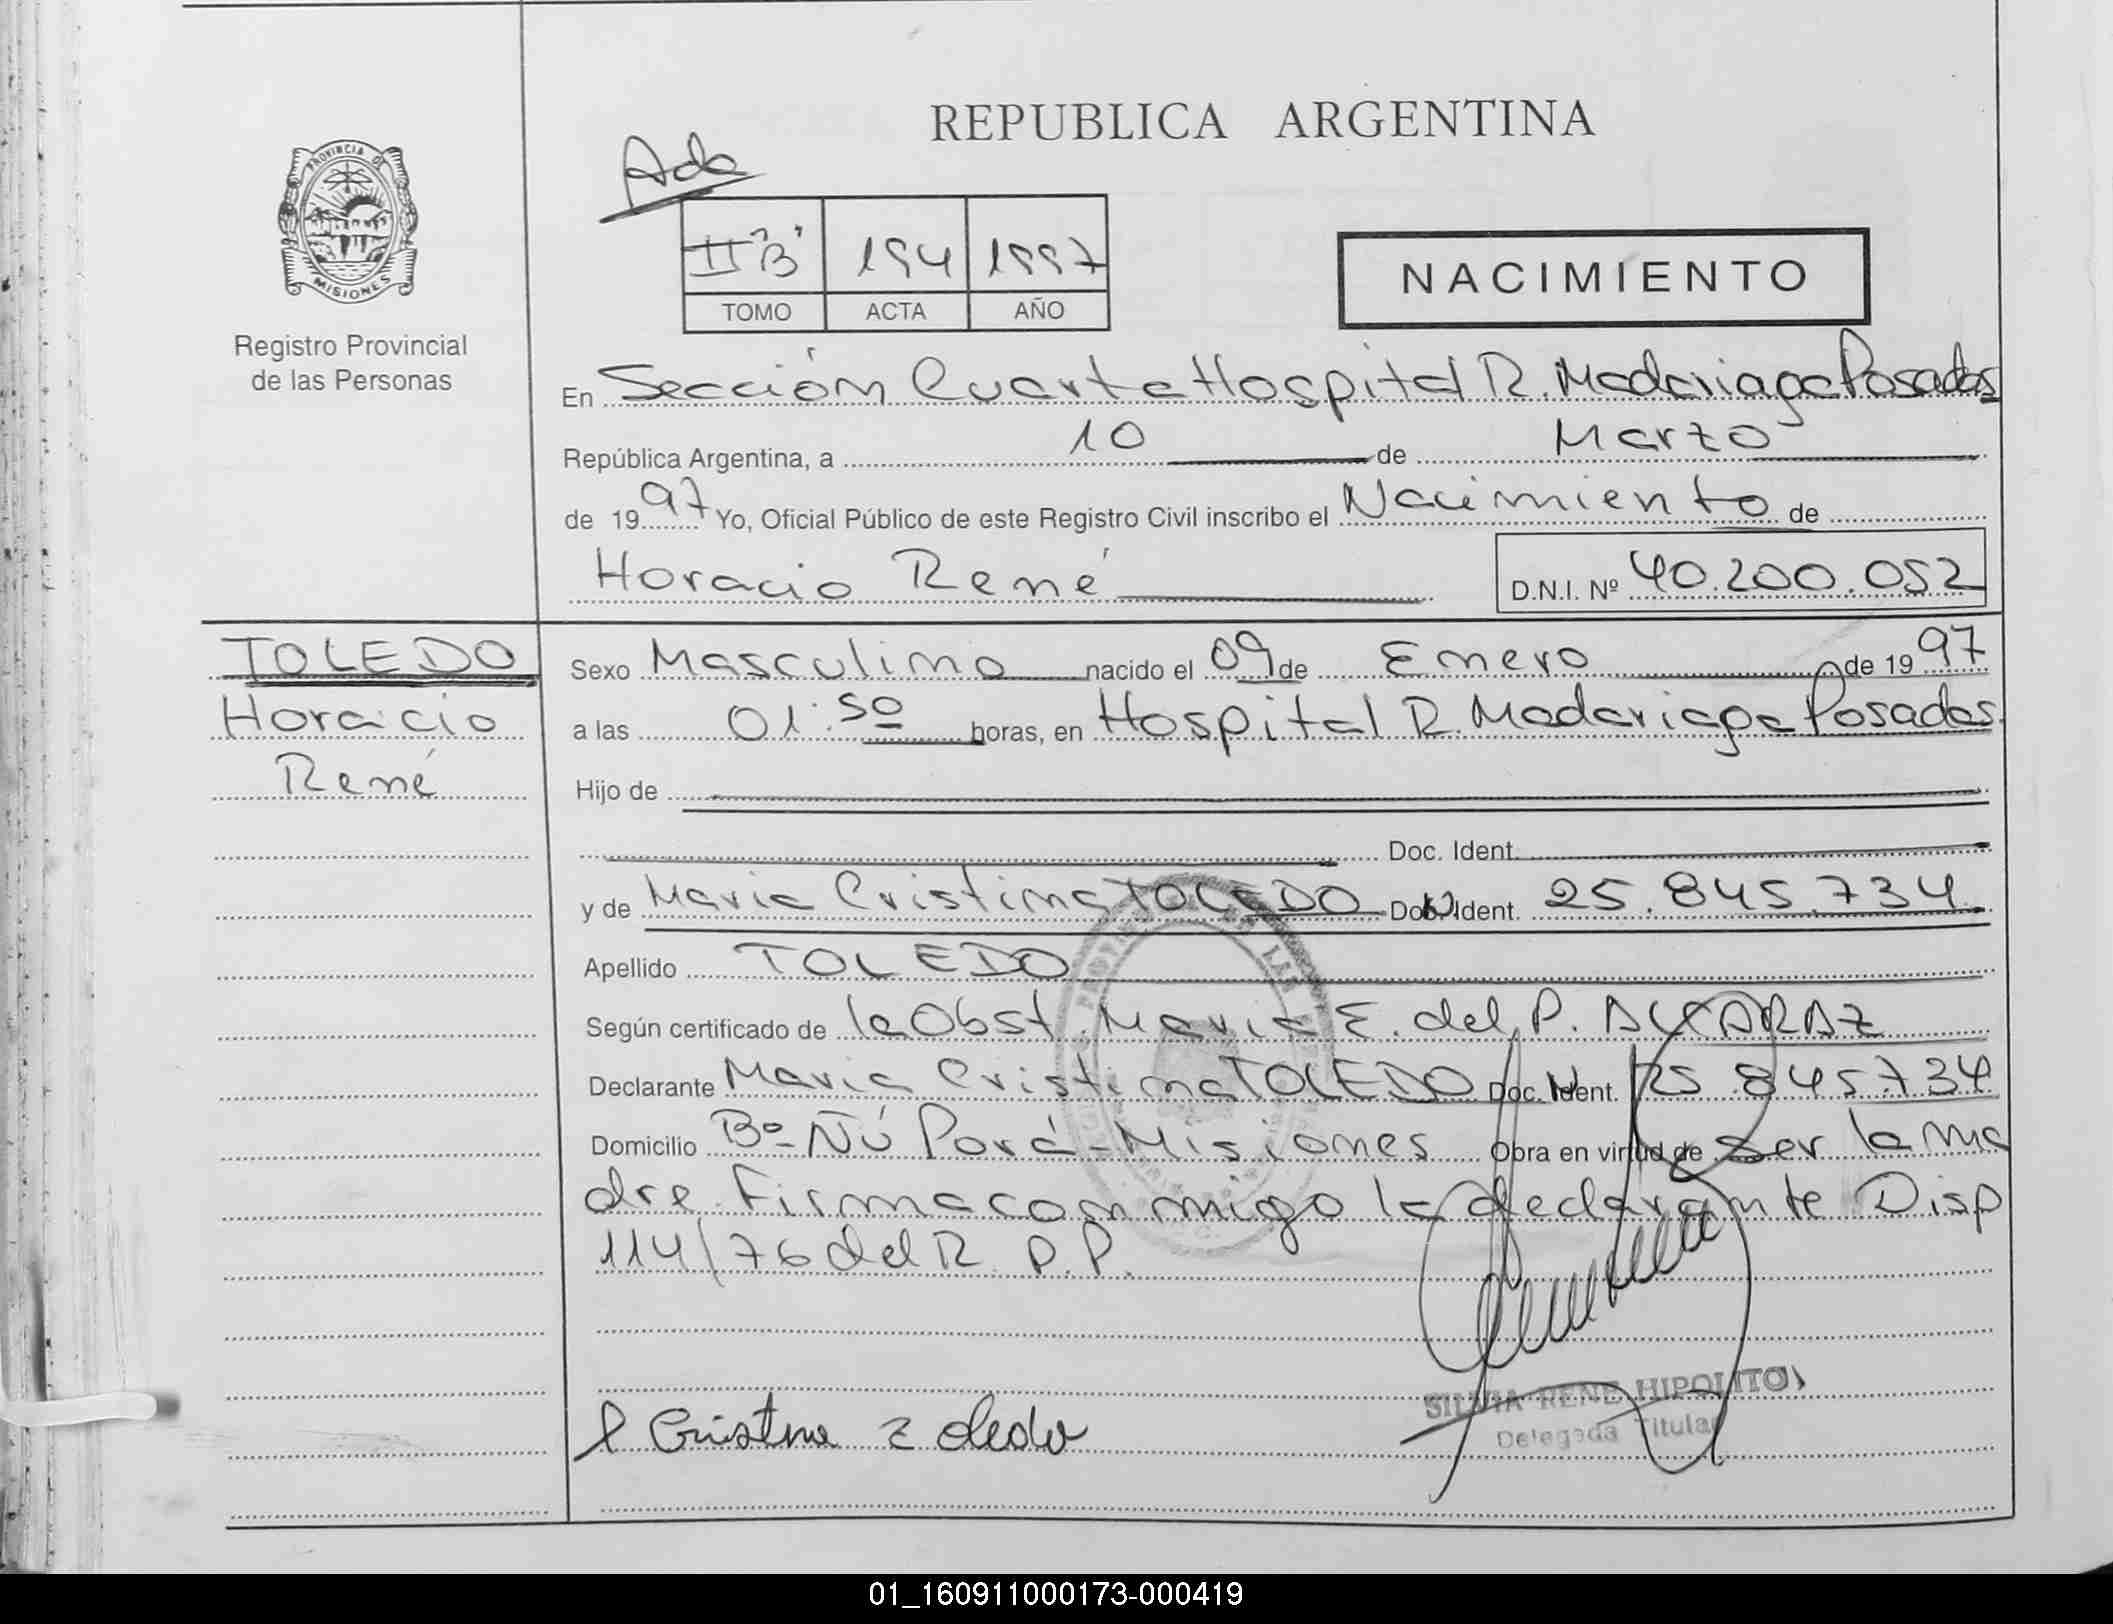 REPUBLICA ARGENTINA
PROVINCIA DE
MISIONES
Registro Provincial
de las Personas
II "B" 194 1997
TOMO ACTA AÑO
NACIMIENTO
En Sección Cuarta Hospital R. Madariaga Posadas
República Argentina, a 10 de Marzo
de 1997 Yo, Oficial Público de este Registro Civil inscribo el Nacimiento de
Horacio René D.N.I. Nº 40.200.052
TOLEDO
Horacio
René
Sexo Masculino nacido el 09 de Enero de 1997
a las 01:50 horas, en Hospital R. Madariaga Posadas
Hijo de
Doc. Ident.
y de Maria Cristina TOLEDO Doc. Ident. 25.845.734
Apellido TOLEDO
Según certificado de la Obst. Maria E. del P. ALCARAZ
Declarante Maria Cristina TOLEDO Doc. Ident. 25.845.734
Domicilio Bº- Ñú Porá - Misiones Obra en virtud de ser la ma
dre. Firma conmigo la declarante Disp
114/76 del R. P. P.
Cristina Toledo
SILVIA RENE HIPOLITO
Delegada Titular
01_160911000173-000419